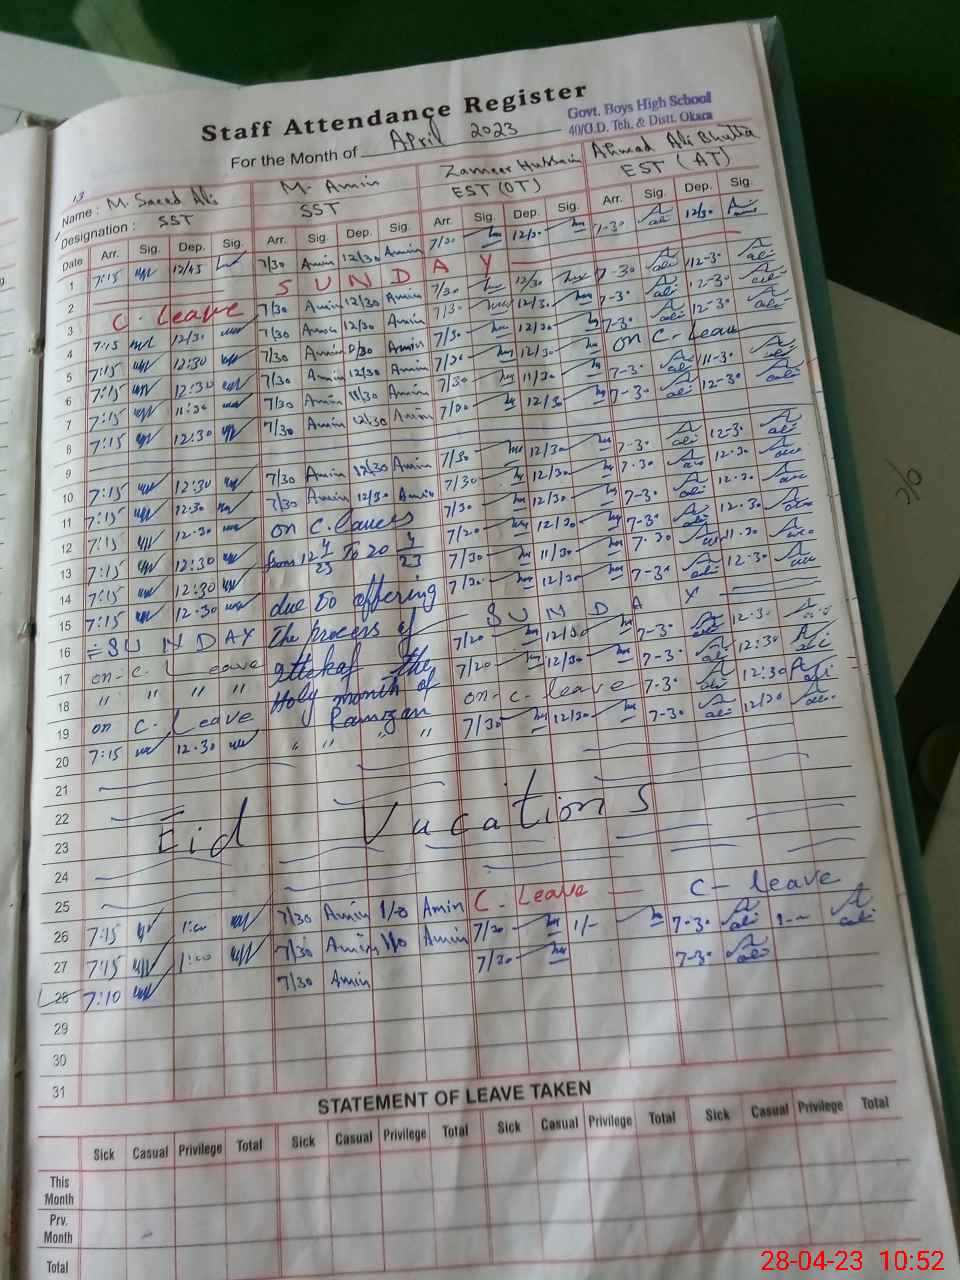 Staff Attendance Register
Govt. Boys High School
40/G.D. Teh. & Distt. Okara
For the Month of April 2023
13
Name : M. Saeed Ali M. Amin Zameer Hussain Ahmad Ali Bhutta
Designation : SST SST EST (OT) EST (AT)
Date Arr. Sig. Dep. Sig. Arr. Sig. Dep. Sig. Arr. Sig. Dep. Sig. Arr. Sig. Dep. Sig.
1 7:15 12/45 7/30 Amin 12/30 Amin 7/30 12/30 7-30 ali 12/30
2 SUNDAY
3 C. Leave 7/30 Amin 12/30 Amin 7/30 12/30 7-30 ali 12-30 ali
4 7:15 12/30 7/30 Amin 12/30 Amin 7/30 12/30 7-30 ali 12-30 ali
5 7:15 12:30 7/30 Amin 12/30 Amin 7/30 12/30 7-30 ali 12-30 ali
6 7:15 12:30 7/30 Amin 12/30 Amin 7/30 12/30 on C. Leave
7 7:15 11:30 7/30 Amin 11/30 Amin 7/30 11/30 7-30 ali 11-30 ali
8 7:15 12:30 7/30 Amin 12/30 Amin 7/30 12/30 7-30 ali 12-30 ali
9
10 7:15 12:30 7/30 Amin 12/30 Amin 7/30 12/30 7-30 ali 12-30 ali
11 7:15 12:30 7/30 Amin 12/30 Amin 7/30 12/30 7-30 12-30
12 7:15 12-30 on C. leaves 7/30 12/30 7-30 ali 12-30
13 7:15 12:30 from 12 4/23 To 20 4/23 7/30 12/30 7-30 ali 12-30
14 7:15 12:30 7/30 11/30 7-30 11-30
15 7:15 12-30 due to offering 7/30 12/30 7-30 ali 12-30
16 SUNDAY The process of SUNDAY
17 on-C. Leave attekaf the 7/30 12/30 7-30 ali 12-30
18 " " " " Holy month of 7/30 12/30 7-30 ali 12:30
19 on C. Leave Ramzan on-c-leave 7-30 ali 12:30
20 7:15 12-30 " " " " 7/30 12/30 7-30 ali 12/30
21
22
23 Eid Vacations
24
25
26 7:15 1:00 7/30 Amin 1/-0 Amin C. Leave C- leave
27 7:15 1:00 7/30 Amin 1/0 Amin 7/30 1/- 7-30 ali 1-- ali
28 7:10 7/30 Amin 7/30 7-30 ali
29
30
31
STATEMENT OF LEAVE TAKEN
Sick Casual Privilege Total Sick Casual Privilege Total Sick Casual Privilege Total Sick Casual Privilege Total
This
Month
Prv.
Month
Total
28-04-23 10:52